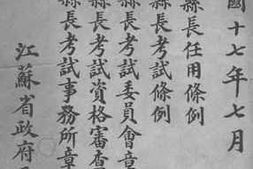 國十七年七月
縣長任用條例
縣長考試條例
縣長考試委員會章
縣長考試資格審查
縣長考試事務所章
江蘇省政府